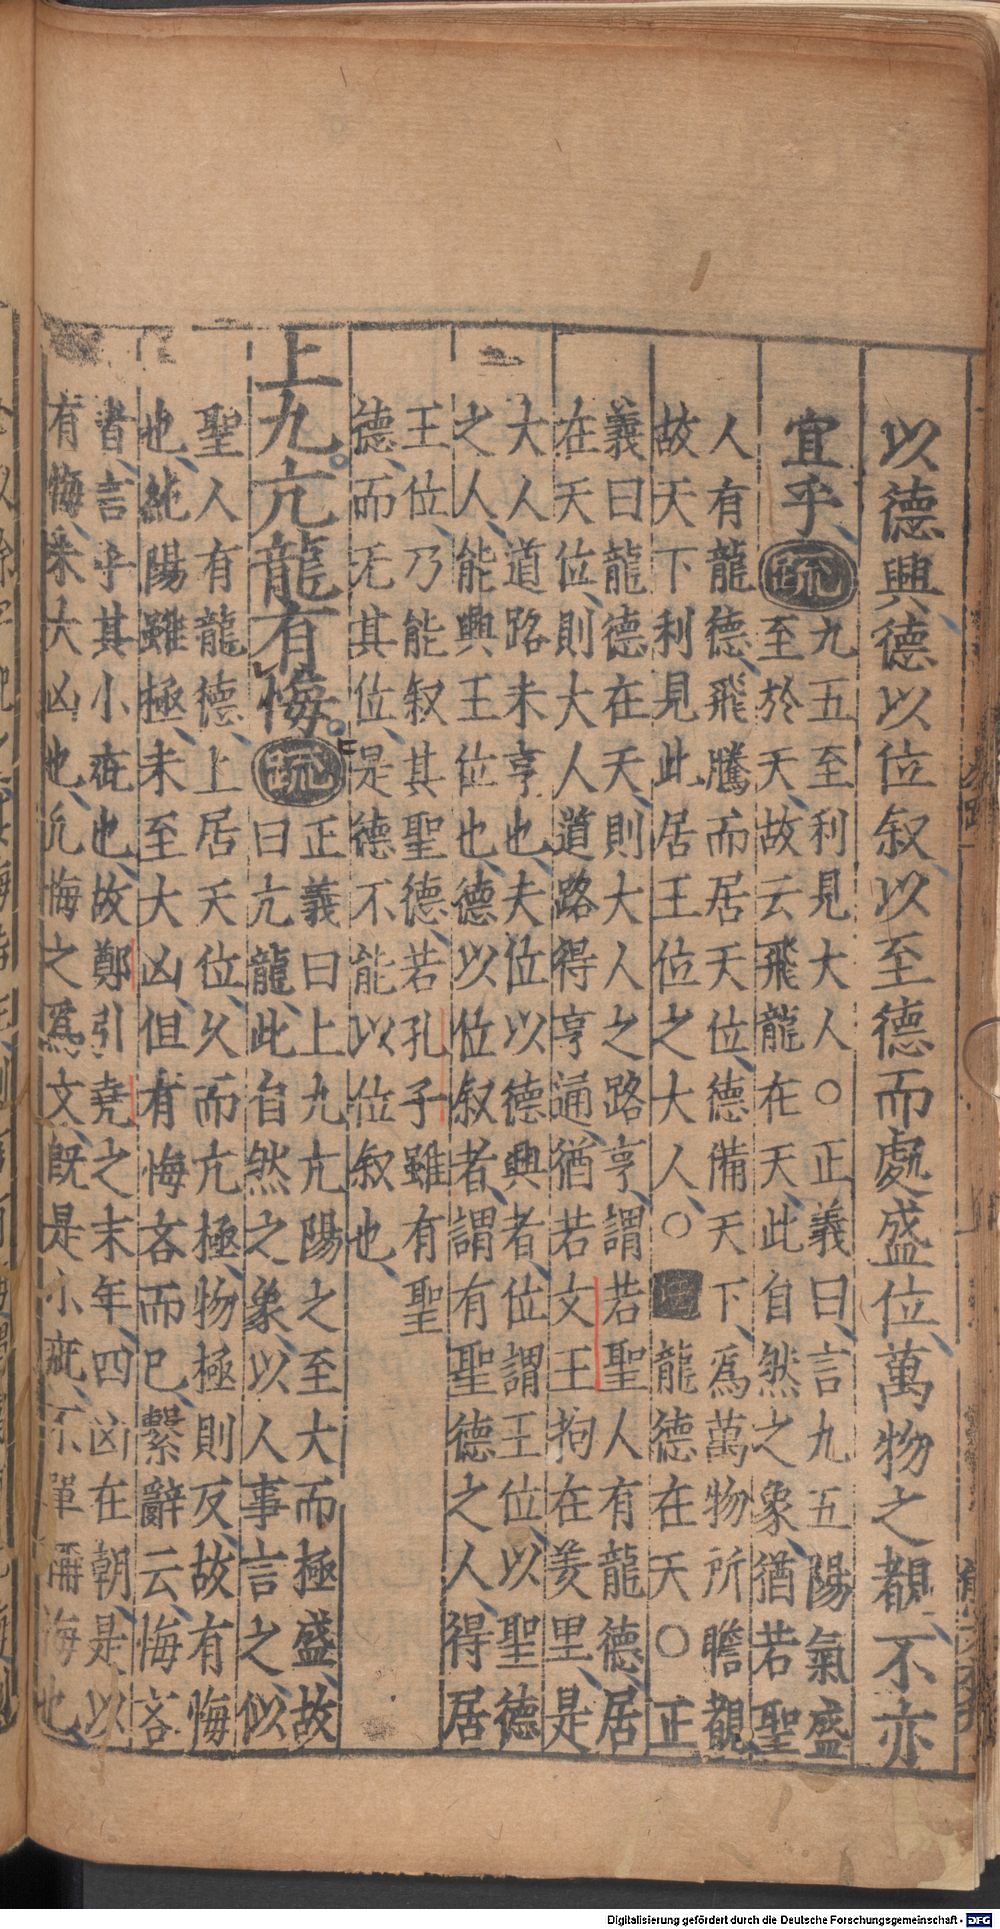 以德興德以位叙以至德而處盛位萬物之覩不亦
宜乎疏
九五至利見大人○正義曰言九五陽氣盛
至於天故云飛龍在天此自然之象猶若聖
人有龍德飛騰而居天位德備天下爲萬物所瞻覩
故天下利見此居王位之大人○注龍德在天○正
義曰龍德在天則大人之路亨謂若聖人有龍德居
在天位則大人道路得亨通猶若文王拘在羑里是
大人道路未亨也夫位以德興者位謂王位以聖德
之人能興王位也德以位叙者謂有聖德之人得居
王位乃能叙其聖德若孔子雖有聖
德而无其位是德不能以位叙也
上九亢龍有悔疏
正義曰上九亢陽之至大而極盛故
曰亢龍此自然之象以人事言之似
聖人有龍德上居天位久而亢極物極則反故有悔
也純陽雖極未至大凶但有悔吝而已繫辭云悔吝
者言乎其小疵也故鄭引堯之末年四凶在朝是以
有悔未大凶也凡悔之爲文既是小疵不單稱悔也
Digitalisierung gefördert durch die Deutsche Forschungsgemeinschaft - DFG